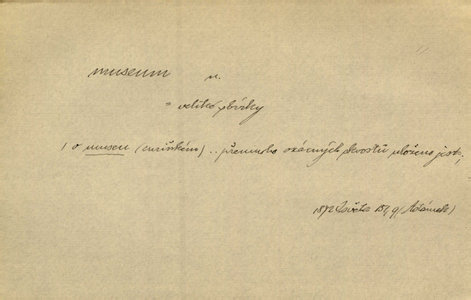 museum n.
= veliké sbírky
, o museu (curišském) .. přemnoho vzácných skvostů uloženo jest,
1872 Světoz 157 (Adámek)